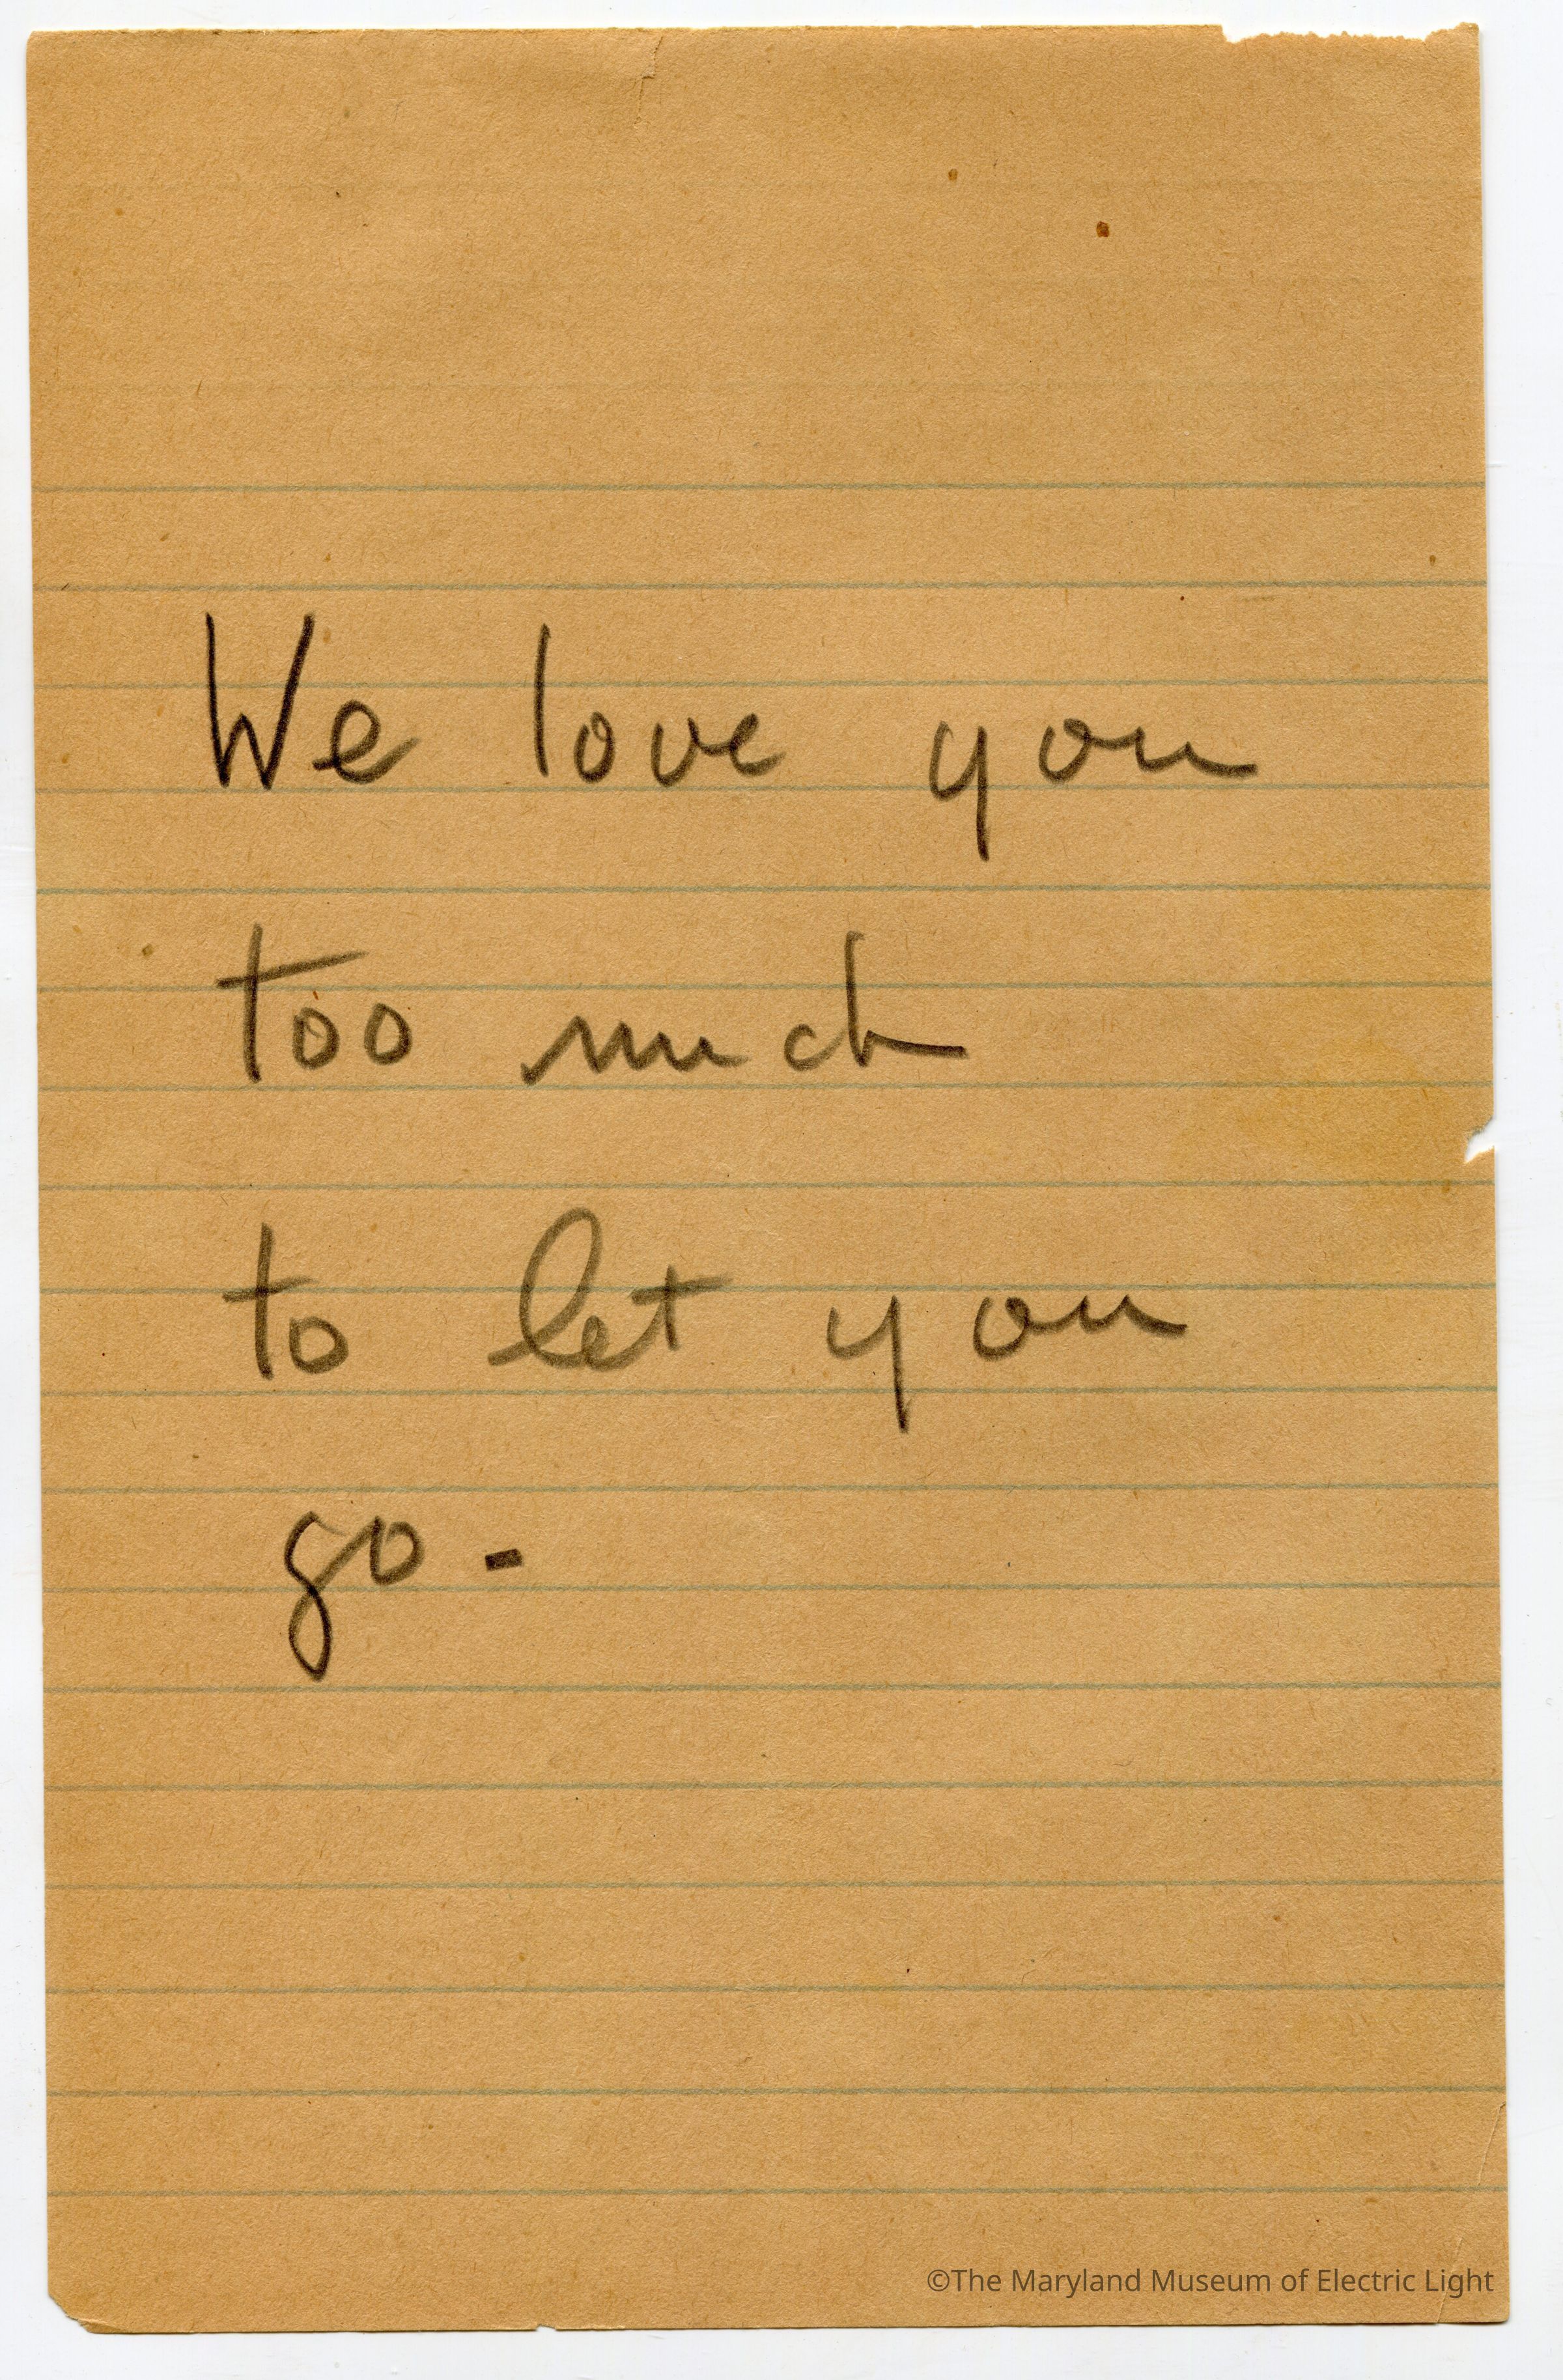 We love you
too much
to let you
go -
©The Maryland Museum of Electric Light